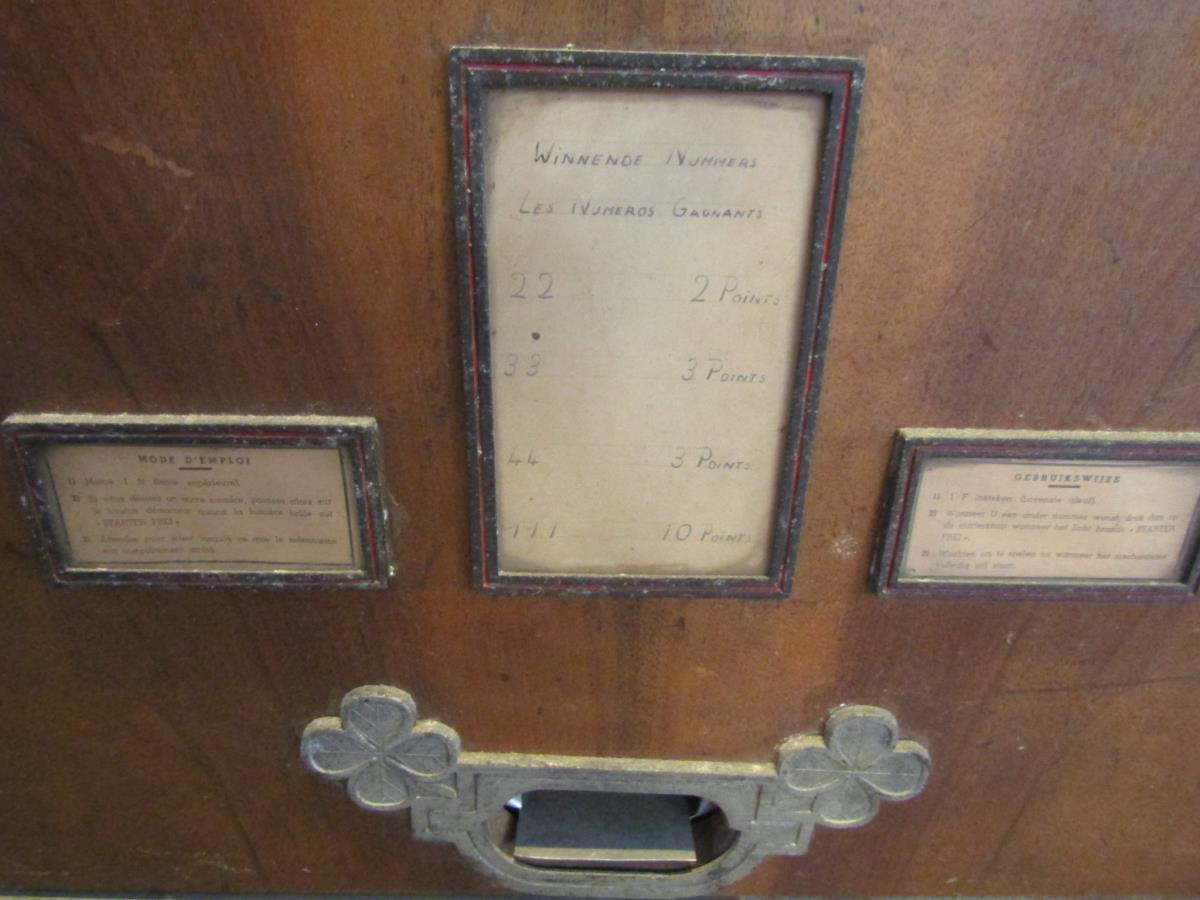 WINNENDE NUMMERS
LES NUMEROS GAGNANTS
22 2 POINTS
33 3 POINTS
44 3 POINTS
111 10 POINTS
MODE D'EMPLOI
1) Mettre 1 fr
2) Si vous désirez un autre numéro, poussez alors sur
le bouton démarreur quand la lumière brûle sur
« STARTER FREI ».
3) Attendre pour miser jusqu'à ce que le mécanisme
est complètement arrêté.
GEBRUIKSWIJZE
1) 1 F insteken (bovenste gleuf).
2) Wanneer U een ander nummer wenst druk dan op
de starterknop wanneer het licht brandt « STARTER
FREI ».
3) Wachten om te spelen tot wanneer het mechanisme
volledig stil staat.